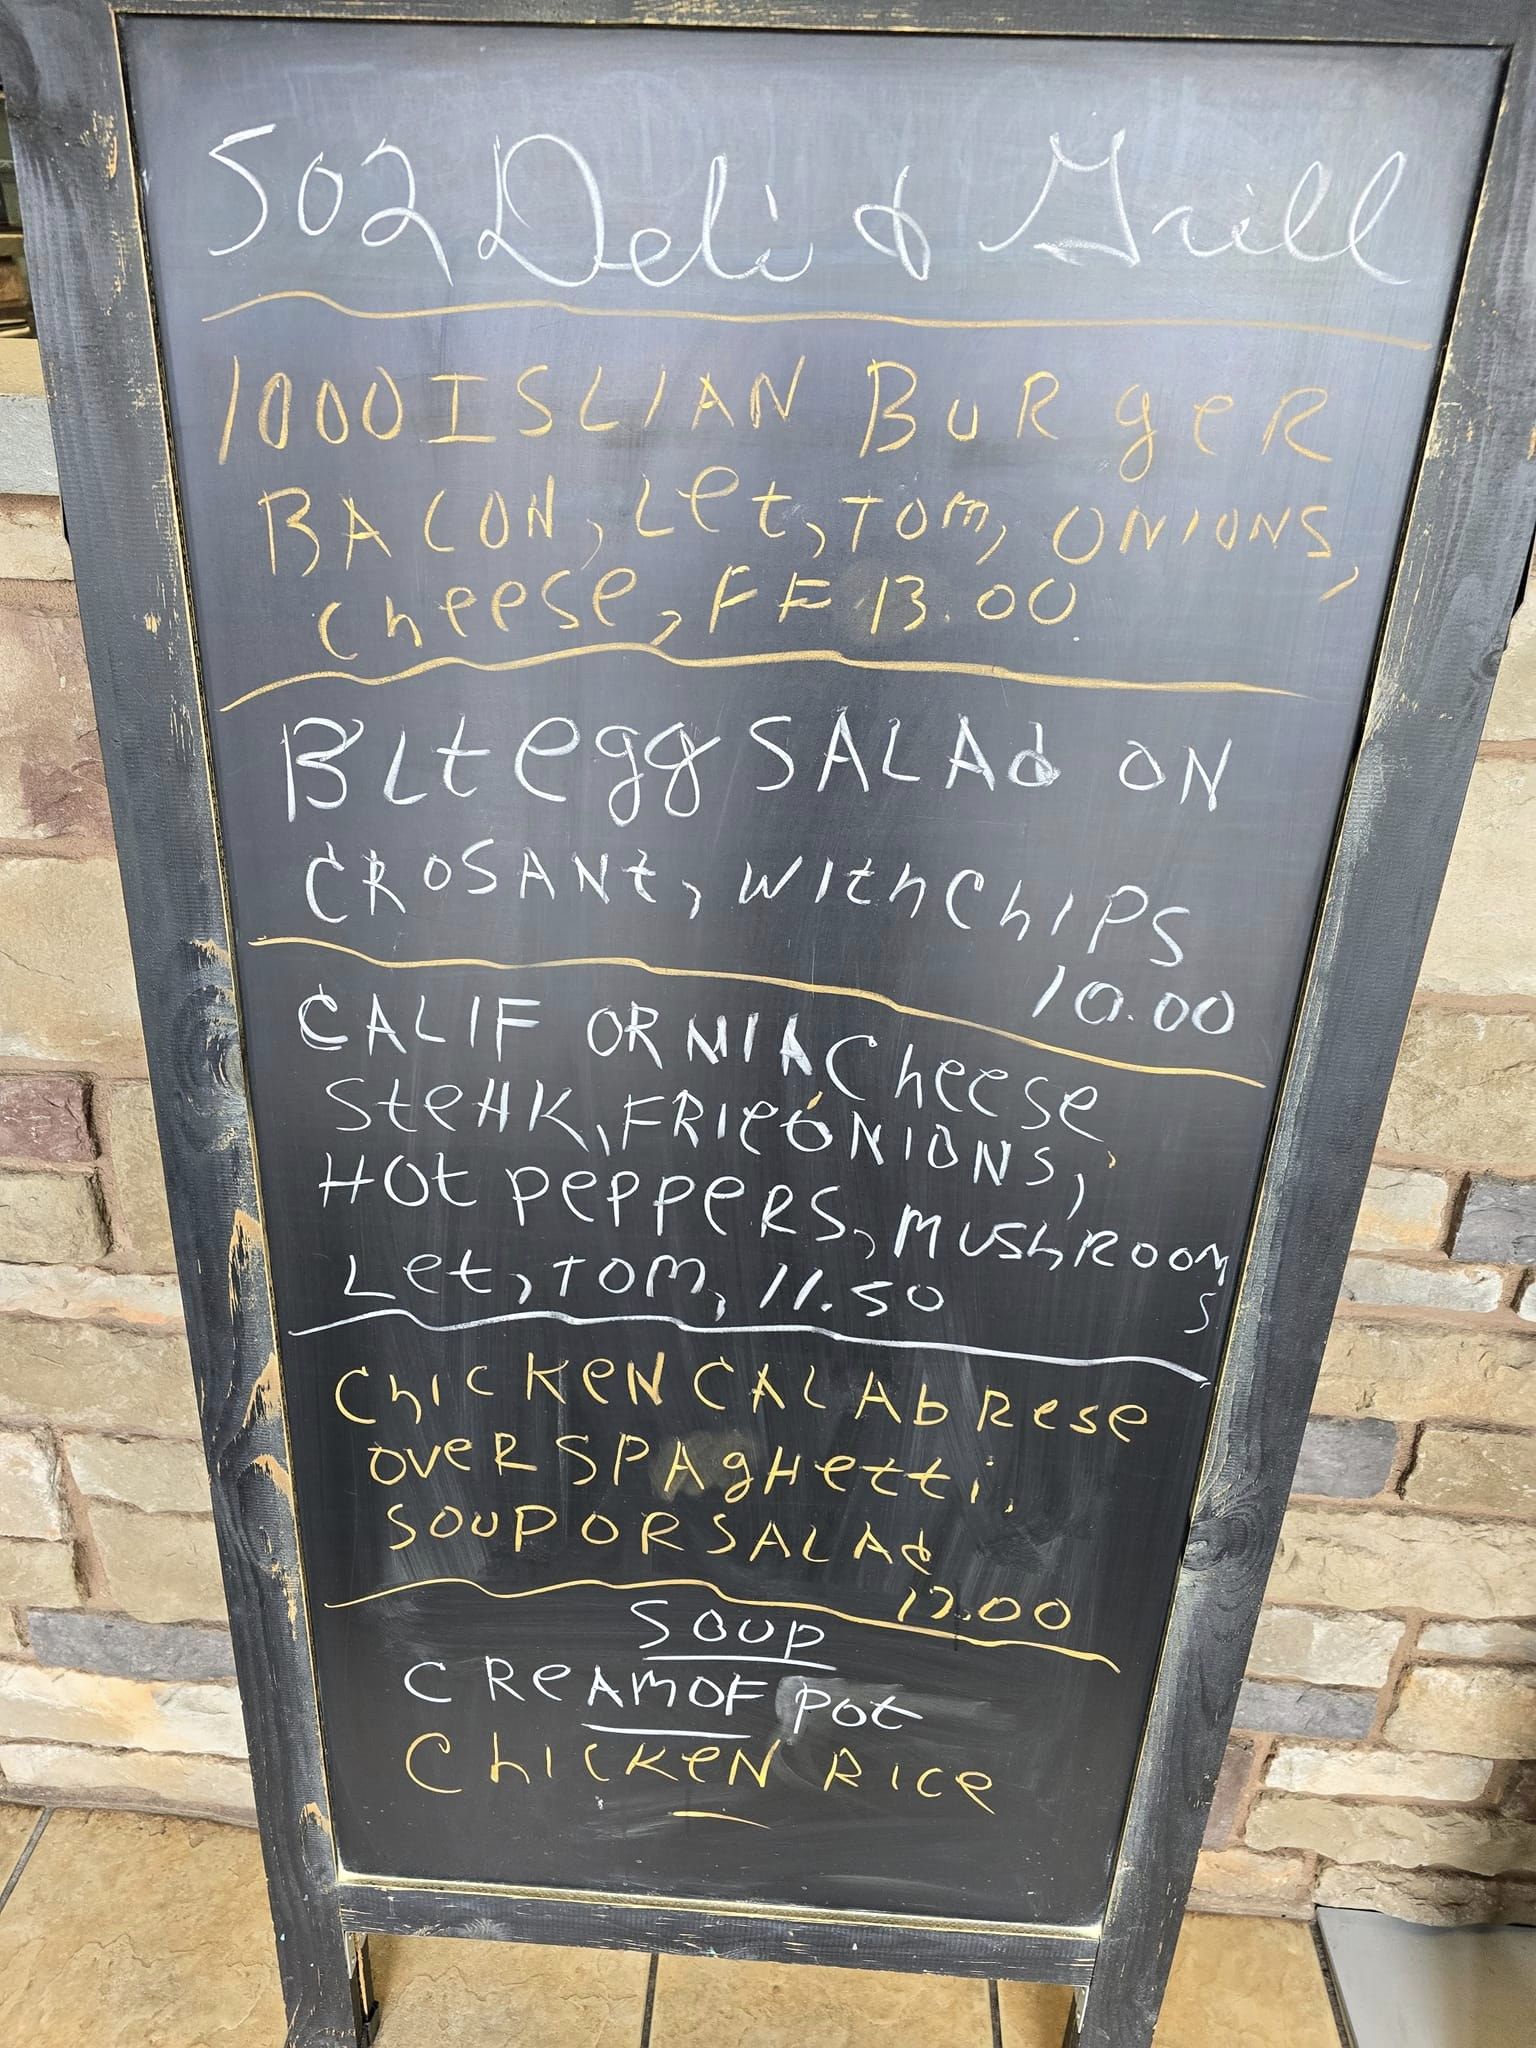 502 Deli & Grill
1000 ISLIAN BURgeR
BACON, Let, TOM, ONIONS,
Cheese, FF 13.00
BLt egg SALAd ON
CROSANt, With ChIPS
10.00
CALIFORNIA Cheese
SteAK, FRIeONIONS,
HOt PePPeRS, MUShROOM
S
Let, TOM, 11.50
ChICKeN CALAbRese
OVeR SPAgHetti.
SOUP OR SALAd
17.00
SOUP
CReAM OF POt
ChICKeN RICe